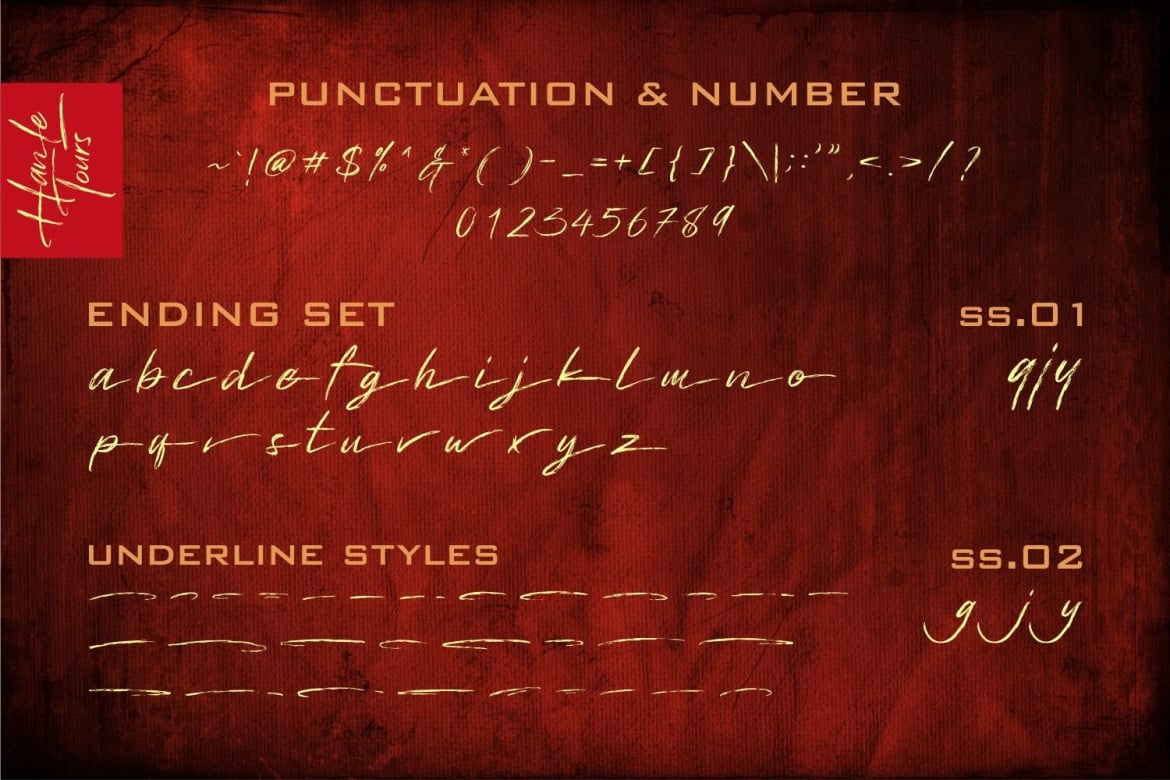 Hante
Tours
PUNCTUATION & NUMBER
~`!@#$%^&*()-_=+[{]}\|;:'",<.>/?
0123456789
ENDING SET
abcdefghijklmno
pqrstuvwxyz
ss.01
gjy
UNDERLINE STYLES
ss.02
gjy